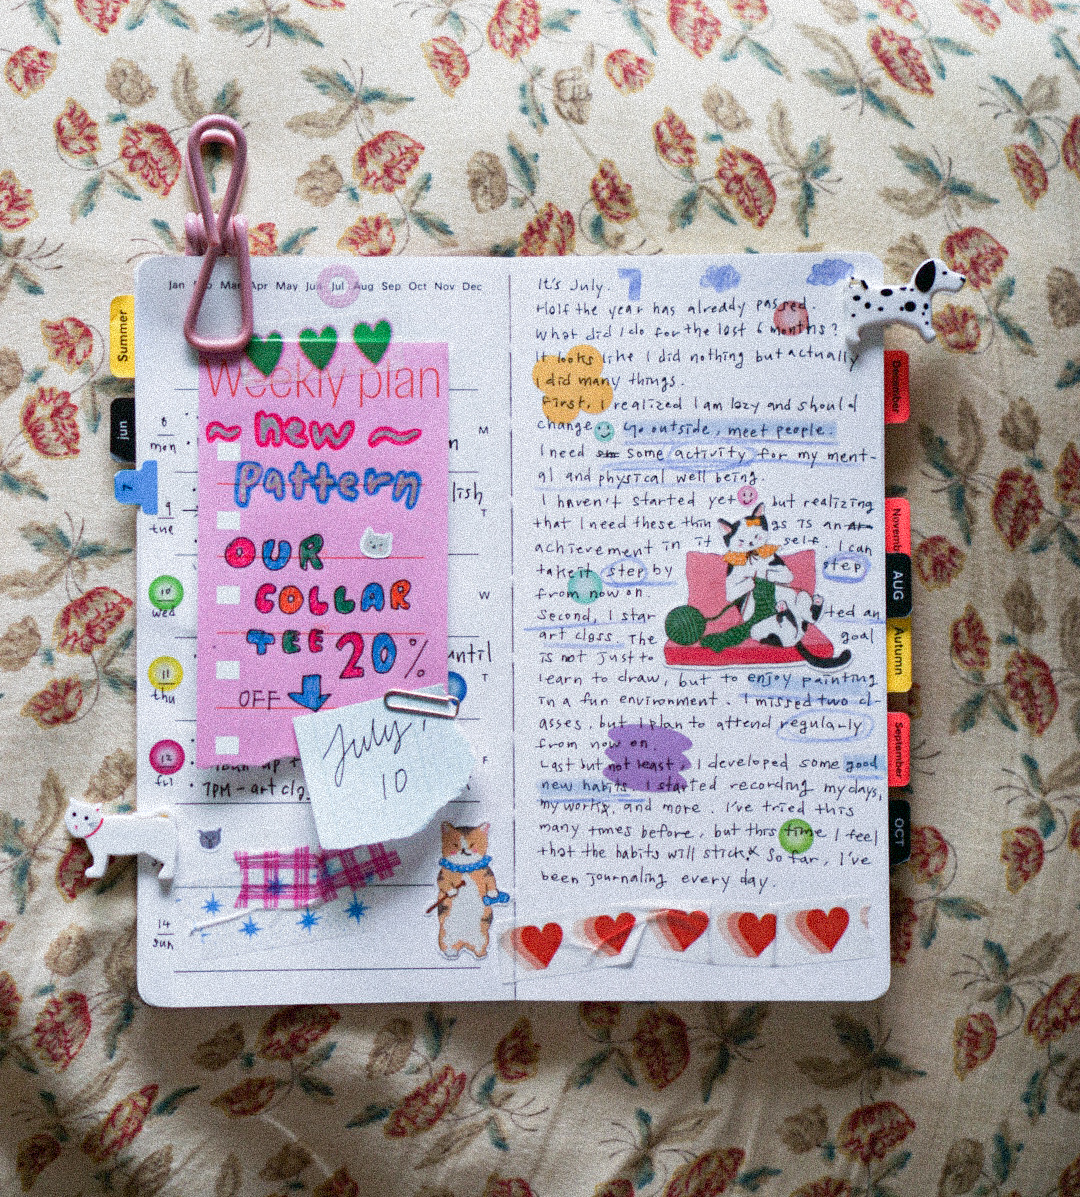 Jan Mar Apr May Jun Jul Aug Sep Oct Nov Dec
Summer
jun
7
Weekly plan
~ new ~
pattern
OUR
COLLAR
TEE 20%
OFF
July!
10
8
mon
9
tue
10
wed
11
thu
12
fri
14
sun
M
T
W
T
F
until
7PM - art
It's July.
7
Half the year has already passed.
What did I do for the last 6 months?
It looks like I did nothing but actually
I did many things.
First, I realized I am lazy and should
change. Go outside, meet people.
I need some activity for my ment-
al and physical well being.
I haven't started yet but realizing
that I need these things is an
achievement in it self. I can
take it step by step
from now on.
Second, I started an
art class. The goal
is not just to
learn to draw, but to enjoy painting
in a fun environment. I missed two cl-
asses, but I plan to attend regularly
from now on.
Last but not least, I developed some good
new habits. I started recording my days,
my works, and more. I've tried this
many times before, but this time I feel
that the habits will stick. So far, I've
been journaling every day.
December
November
AUG
Autumn
September
OCT